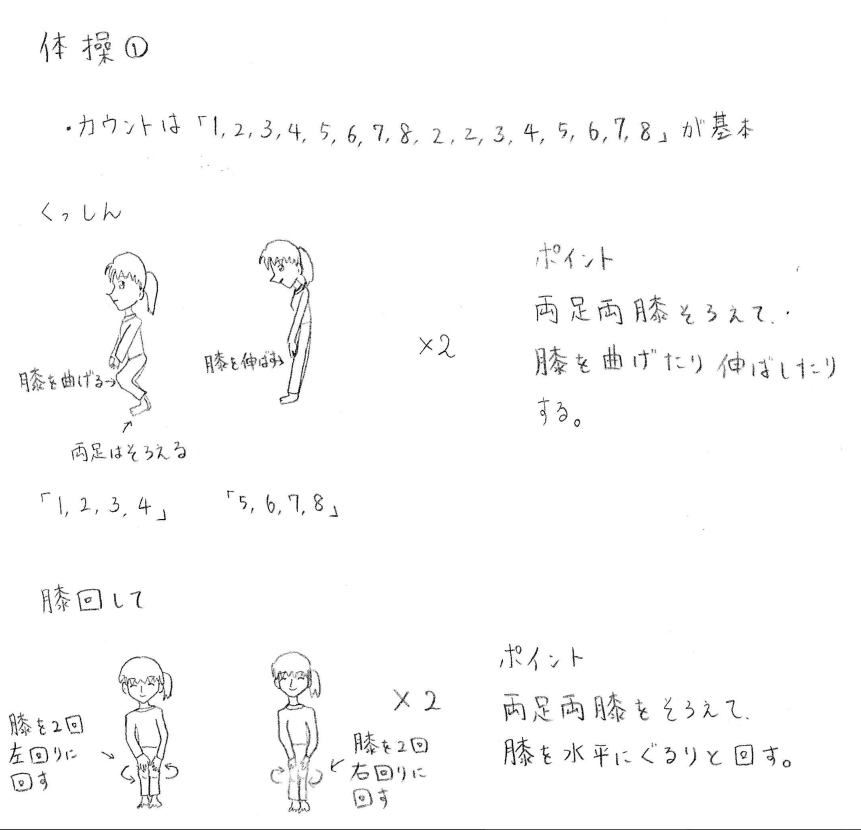 体操①
・カウントは「1,2,3,4,5,6,7,8,2,2,3,4,5,6,7,8」が基本
くっしん
膝を曲げる→
両足はそろえる
「1,2,3,4」
膝を伸ばす→
「5,6,7,8」
×2
ポイント
両足両膝そろえて、
膝を曲げたり伸ばしたり
する。
膝回して
膝を2回
左回りに
回す
×2
膝を2回
右回りに
回す
ポイント
両足両膝をそろえて、
膝を水平にぐるりと回す。